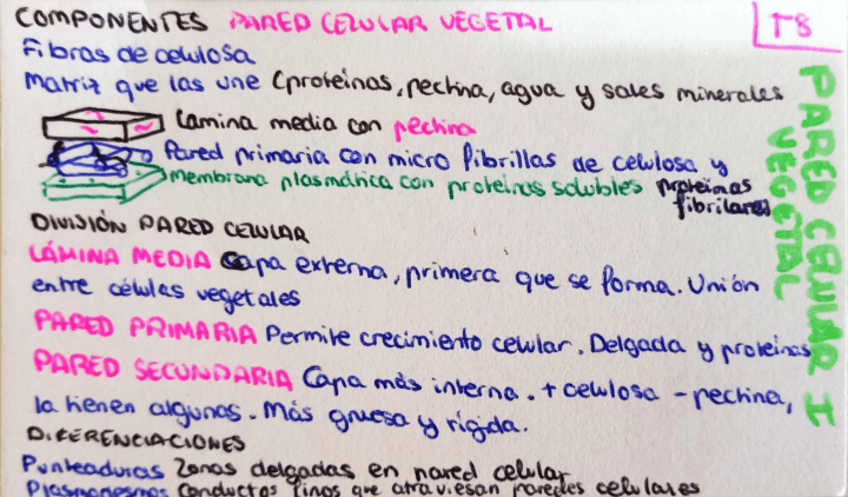 COMPONENTES PARED CELULAR VEGETAL
T8
Fibras de celulosa
Matriz que las une (proteínas, pectina, agua y sales minerales
Lamina media con pectina
Pared primaria con micro fibrillas de celulosa y
membrana plasmática con proteinas solubles proteinas
fibrilares
DIVISIÓN PARED CELULAR
LÁMINA MEDIA Capa externa, primera que se forma. Unión
entre células vegetales
PARED PRIMARIA Permite crecimiento celular. Delgada y proteínas
PARED SECUNDARIA Capa más interna. + celulosa - pectina,
la tienen algunas. Más gruesa y rígida.
DIFERENCIACIONES
Punteaduras Zonas delgadas en pared celular
Plasmodesmos Conductos finos que atraviesan paredes celulares
PARED CELULAR I
VEGETAL